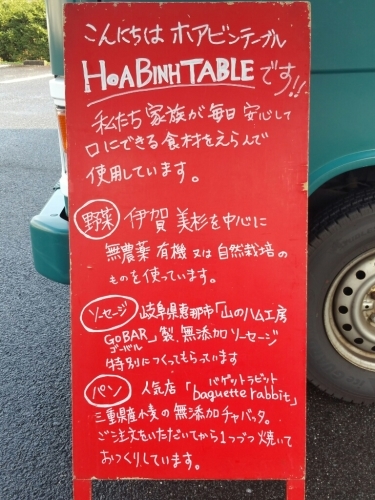 こんにちは ホアビンテーブル
HOABINHTABLEです!!
私たち家族が毎日安心して
口にできる食材をえらんで
使用しています。
野菜 伊賀 美杉を中心に
無農薬 有機 又は 自然栽培の
ものを使っています。
ソーセージ 岐阜県恵那市「山のハム工房
GOBAR」製、無添加ソーセージ
ゴーバル
特別につくってもらっています
パン 人気店「baguette rabbit」
バゲットラビット
三重県産小麦の無添加チャバッタ。
ご注文をいただいてから1つづつ焼いて
おつくりしています。